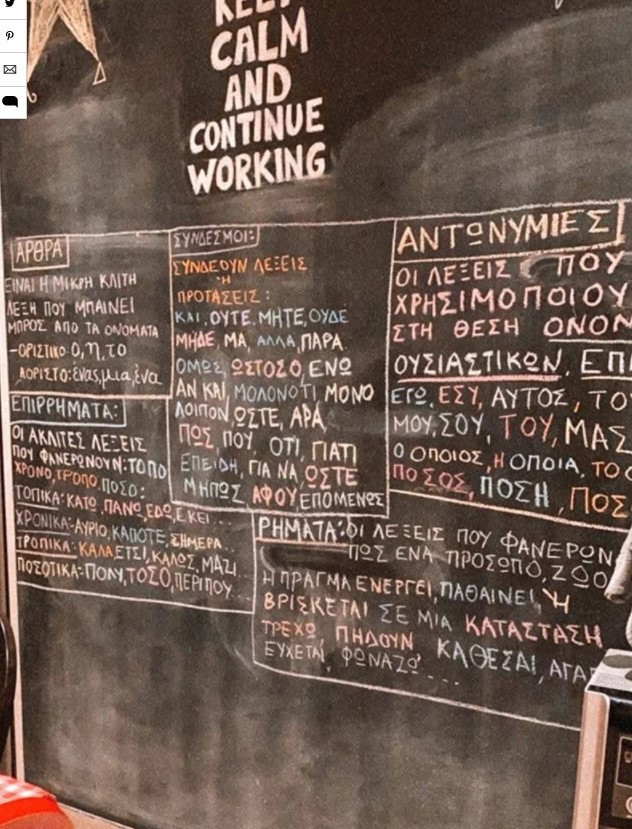 KEEP
CALM
AND
CONTINUE
WORKING
ΑΡΘΡΑ
ΕΙΝΑΙ Η ΜΙΚΡΗ ΚΛΙΤΗ
ΛΕΞΗ ΠΟΥ ΜΠΑΙΝΕΙ
ΜΠΡΟΣ ΑΠΟ ΤΑ ΟΝΟΜΑΤΑ
-ΟΡΙΣΤΙΚΟ: Ο, η, το
ΑΟΡΙΣΤΟ: ένας, μια, ένα
ΕΠΙΡΡΗΜΑΤΑ:
ΟΙ ΑΚΛΙΤΕΣ ΛΕΞΕΙΣ
ΠΟΥ ΦΑΝΕΡΩΝΟΥΝ: ΤΟΠΟ
ΧΡΟΝΟ, ΤΡΟΠΟ, ΠΟΣΟ:
ΤΟΠΙΚΑ: ΚΑΤΩ, ΠΑΝΩ, ΕΔΩ, ΕΚΕΙ...
ΧΡΟΝΙΚΑ: ΑΥΡΙΟ, ΚΑΠΟΤΕ, ΣΗΜΕΡΑ
ΤΡΟΠΙΚΑ: ΚΑΛΑ, ΕΤΣΙ, ΚΑΛΩΣ, ΜΑΖΙ...
ΠΟΣΟΤΙΚΑ: ΠΟΛΥ, ΤΟΣΟ, ΠΕΡΙΠΟΥ...
ΣΥΝΔΕΣΜΟΙ:
ΣΥΝΔΕΟΥΝ ΛΕΞΕΙΣ
Ή
ΠΡΟΤΑΣΕΙΣ:
ΚΑΙ, ΟΥΤΕ, ΜΗΤΕ, ΟΥΔΕ
ΜΗΔΕ, ΜΑ, ΑΛΛΑ, ΠΑΡΑ
ΟΜΩΣ, ΩΣΤΟΣΟ, ΕΝΩ
ΑΝ ΚΑΙ, ΜΟΛΟΝΟΤΙ ΜΟΝΟ
ΛΟΙΠΟΝ, ΩΣΤΕ, ΑΡΑ,
ΠΩΣ, ΠΟΥ, ΟΤΙ, ΓΙΑΤΙ
ΕΠΕΙΔΗ, ΓΙΑ ΝΑ, ΩΣΤΕ
ΜΗΠΩΣ ΑΦΟΥ, ΕΠΟΜΕΝΩΣ
ΑΝΤΩΝΥΜΙΕΣ
ΟΙ ΛΕΞΕΙΣ ΠΟΥ
ΧΡΗΣΙΜΟΠΟΙΟΥ
ΣΤΗ ΘΕΣΗ ΟΝΟΜ
ΟΥΣΙΑΣΤΙΚΩΝ, ΕΠΙ
ΕΓΩ, ΕΣΥ, ΑΥΤΟΣ, ΤΟ
ΜΟΥ, ΣΟΥ, ΤΟΥ, ΜΑΣ
Ο ΟΠΟΙΟΣ, Η ΟΠΟΙΑ, ΤΟ Ο
ΠΟΣΟΣ, ΠΟΣΗ, ΠΟΣ
ΡΗΜΑΤΑ: ΟΙ ΛΕΞΕΙΣ ΠΟΥ ΦΑΝΕΡΩΝ
ΠΩΣ ΕΝΑ ΠΡΟΣΩΠΟ, ΖΩΟ
Η ΠΡΑΓΜΑ ΕΝΕΡΓΕΙ, ΠΑΘΑΙΝΕΙ, Ή
ΒΡΙΣΚΕΤΑΙ ΣΕ ΜΙΑ ΚΑΤΑΣΤΑΣΗ
ΤΡΕΧΩ, ΠΗΔΟΥΝ ΚΑΘΕΣΑΙ, ΑΓΑΠ
ΕΥΧΕΤΑΙ, ΦΩΝΑΖΩ....